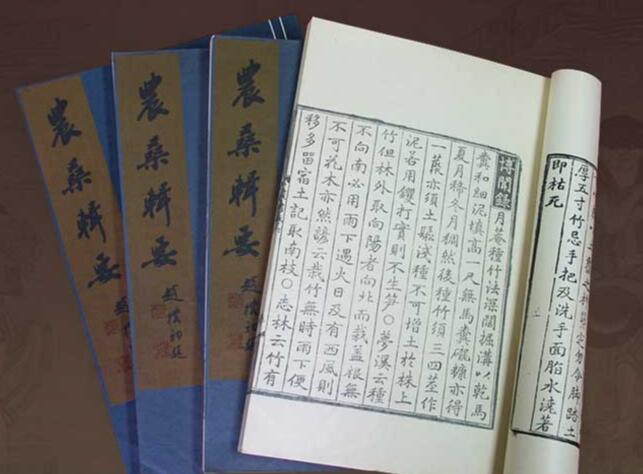 勿令脚踏土
厚五寸竹忌手把及洗手面脂水澆著
即枯死
博聞録月菴種竹法深闊掘溝以乾馬
糞和細泥填高一尺無馬糞礱糠亦得
夏月稀冬月稠然後種竹須三四莖作
一蓧亦須土鬆淺種不可增土於株上
泥若用钁打實則不生筍○夢溪云種
竹但林外取向陽者向北而栽蓋根無
不向南必用雨下遇火日及有西風則
不可花木亦然諺云栽竹無時雨下便
移多留宿土記取南枝○志林云竹有
農桑輯要
趙樸初題
農桑輯要
趙樸初題
農桑輯要
趙樸